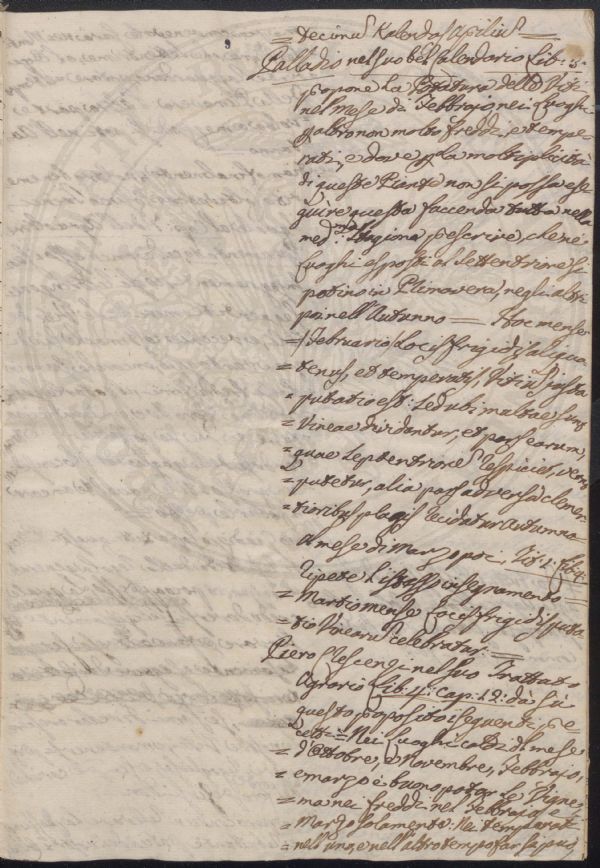 = Decimus Kalendas Aprilius =
Palladio nel suo bel Calendario Lib: 3:
propone la Potatura delle Viti
nel Mese di Febbrajo nei luoghi
però non molto freddi, e tempe-
rati, e dove p. la molteplicità
di queste Piante non si possa ese-
guire questa faccenda tutta nella
med.ma Stagione prescrive, che ne
luoghi esposti al Settentrione si
potino in Primavera, negli altri
poi nell'Autunno = Hoc mense
= Februario locis frigidis aliqua
= tenus, et temperatis, Vitium justa
= putatio est: sed ubi multae sunt
= Vineae dividantur, et pars earum,
= quae septentrione respiciet, vere
= putetur, alia pars adversa clemen-
= tioribus plagis recidatur Autumno
A mese di Marzo poi Tit. 1: Lib. 4:
ripete l'istesso insegnamento
= Martio mense locis frigidis puta-
= tio Vinearum celebratur =
Piero Crescenzi nel suo Trattato
Agrario Lib. 4: Cap: 12: dà sù
questo proposito i seguenti pre-
cetti = Nei luoghi caldi di mese
= d'Ottobre, e Novembre, Febbrajo,
= e marzo è buono potar le Vigne,
= ma nei freddi nel Febbrajo, e
= Marzo solamente: Nei temperati
= nell'uno, e nell'altro tempo far si può